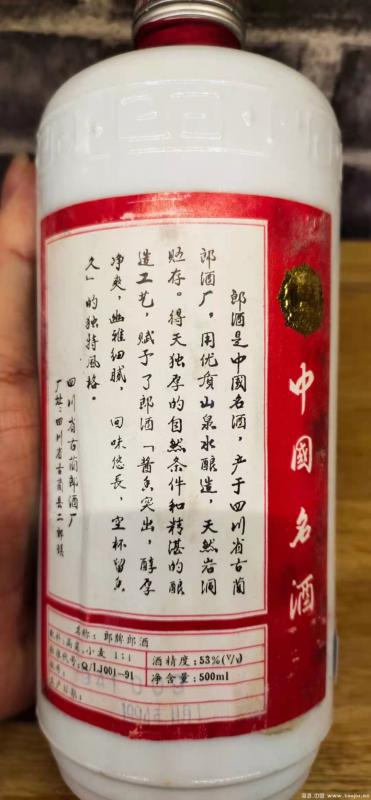 中國名酒
郎酒是中國名酒，产于四川省古蔺
郎酒厂，用优质山泉水酿造，天然岩洞
贮存。得天独厚的自然条件和精湛的酿
造工艺，赋予了郎酒「酱香突出，醇厚
净爽，幽雅细腻，回味悠長，空杯留香
久」的独特風格。
四川省古蔺郎酒厂
厂址：四川省古蔺县二郎镇
名称：郎牌郎酒
小麦 1:1
标准代号：Q/LJ001-91
生产日期：
酒精度：53%(V/V)
净含量：500ml